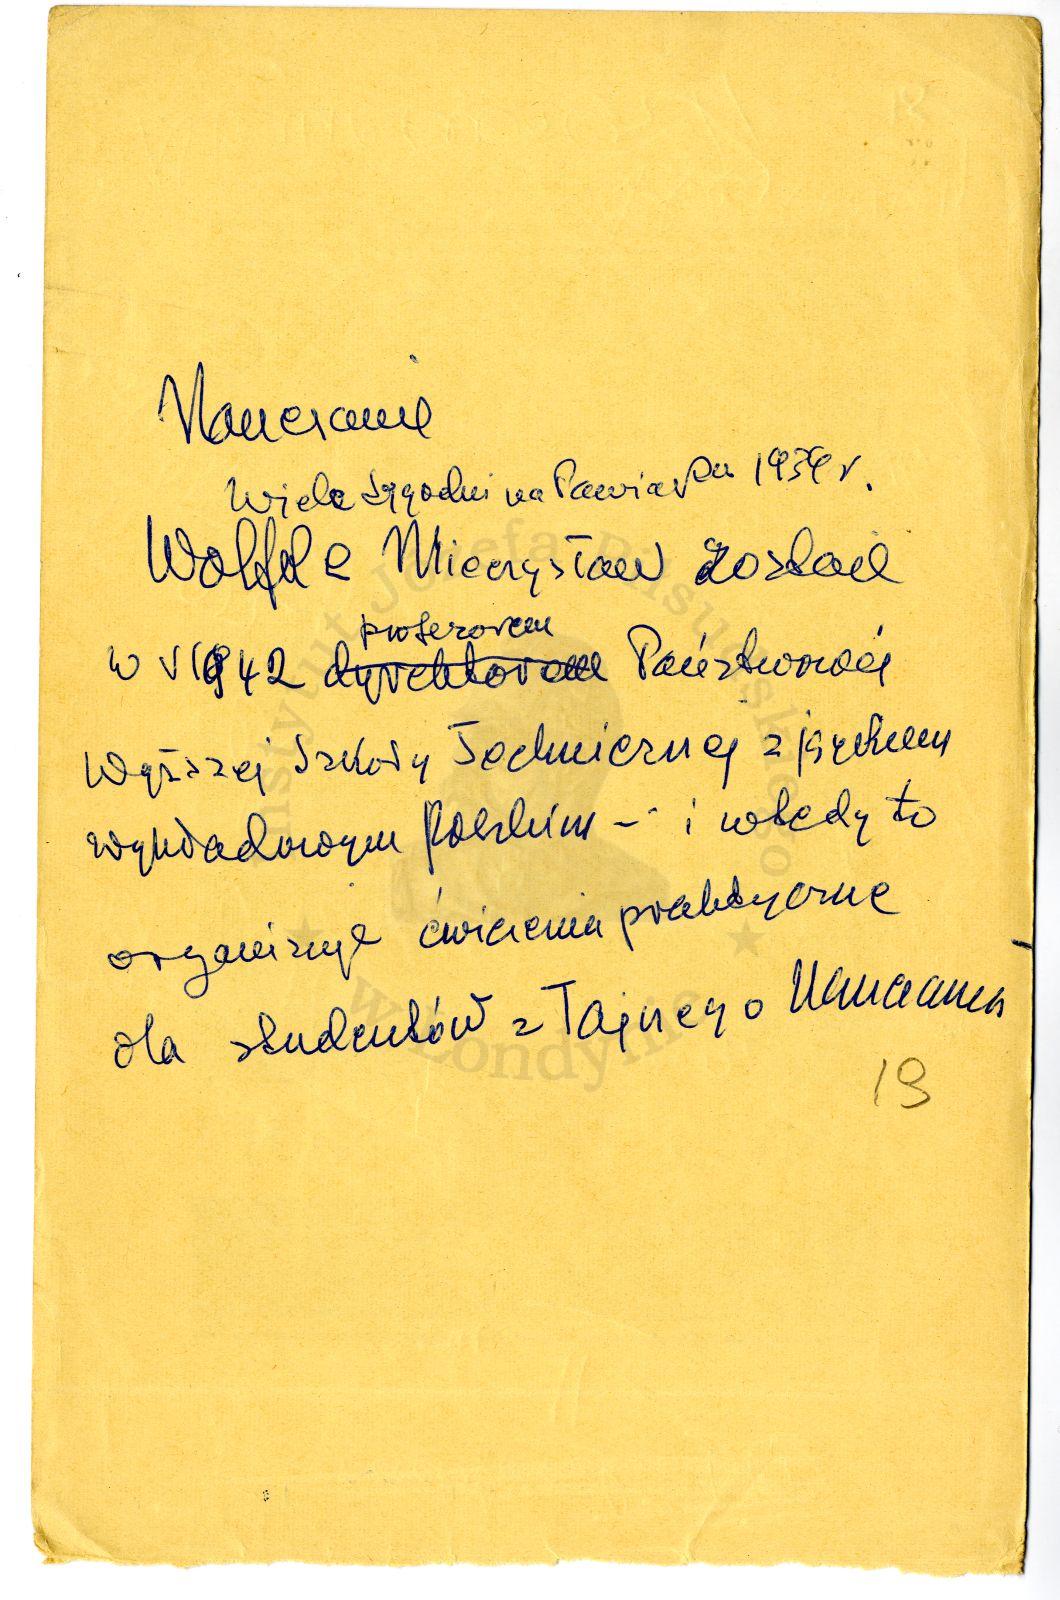 Nauczanie
Wiele tygodni na Pawiaku 1939 r.
Wolfke Mieczysław został
profesorem
w V 1942 dyrektorem Państwowej
Wyższej Szkoły Technicznej z językiem
wykładowym polskim – i wtedy to
organizuje ćwiczenia praktyczne
dla studentów z Tajnego Nauczania
19
Instytut Józefa Piłsudskiego
w Londynie